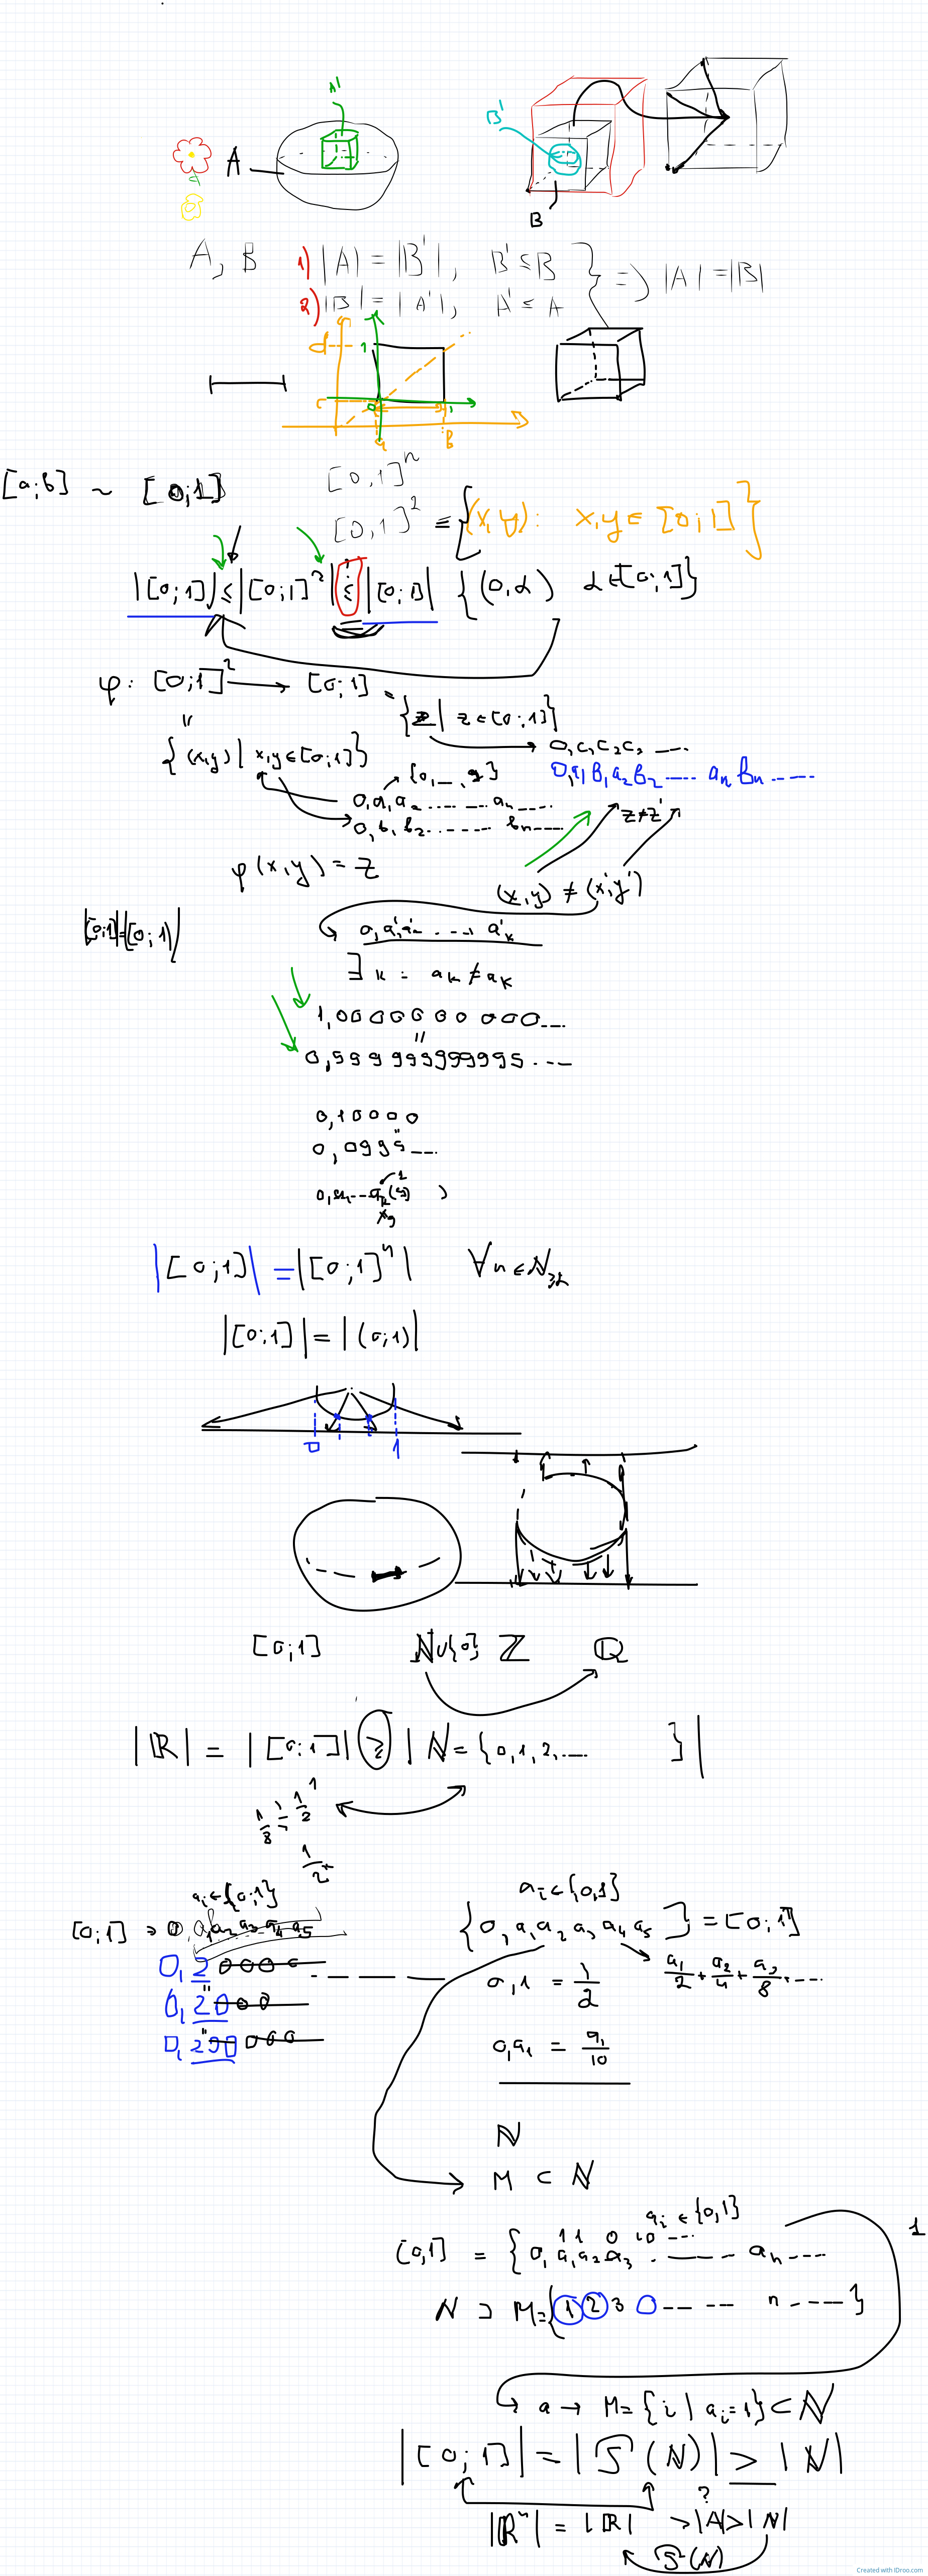 A'
B'
A
B
A, B 1) |A| = |B'|, B' ⊆ B
2) |B| = |A'|, A' ⊆ A } => |A| = |B|
d 1
c 0 1
a B
[a;b] ~ [0;1]
[0,1]ⁿ
[0,1]² = {(x,y): x,y ∈ [0;1]}
|[0;1]| ≤ |[0;1]²| ≤ |[0;1]| {(0,α) α ∈ [0;1]}
φ: [0;1]² → [0;1] = {z | z ∈ [0;1]}
"
{(x,y) | x,y ∈ [0;1]}
0,c₁c₂c₃ ....
{0,_ 9}
0,a₁b₁a₂b₂.... aₙbₙ....
0,a₁a₂........ aₙ....
0,b₁b₂........ bₙ....
z ≠ z'
φ(x,y) = z
(x,y) ≠ (x',y')
|[0;1]| = |[0;1)|
0,a'₁a'₂.... a'ₖ
∃ k : aₖ ≠ aₖ
1,0000000000....
"
0,999999999999....
0,10000
"
0,0999....
|[0;1]| = |[0;1]ⁿ| ∀n ∈ ℕ
|[0;1]| = |(0;1)|
0 1
[0;1] ℕ∪{0} ℤ ℚ
|ℝ| = |[0;1]| ≥ |ℕ = {0,1,2,.... }|
1/8 1/2 1
1/2ⁿ
aᵢ ∈ {0;1}
aᵢ ∈ {0,1}
[0;1] ∋ 0,a₁a₂a₃a₄a₅
{0,a₁a₂a₃a₄a₅ } = [0;1]
0,20000
a₁/2 + a₂/4 + a₃/8 + ....
0,1 = 1/2
0,2000
0,200000
0,a₁ = a₁/10
ℕ
M ⊂ ℕ
aᵢ ∈ {0,1}
1 1 0 10 ...
1
[0,1] = {0,a₁a₂a₃ .... aₙ....
ℕ ⊃ M = {1 2 3 .... n ....}
a → M = {i | aᵢ=1} ⊂ ℕ
|[0;1]| = |𝒫(ℕ)| > |ℕ|
?
|ℝⁿ| = |ℝ| > |A| > |ℕ|
𝒫(ℕ)
Created with IDroo.com